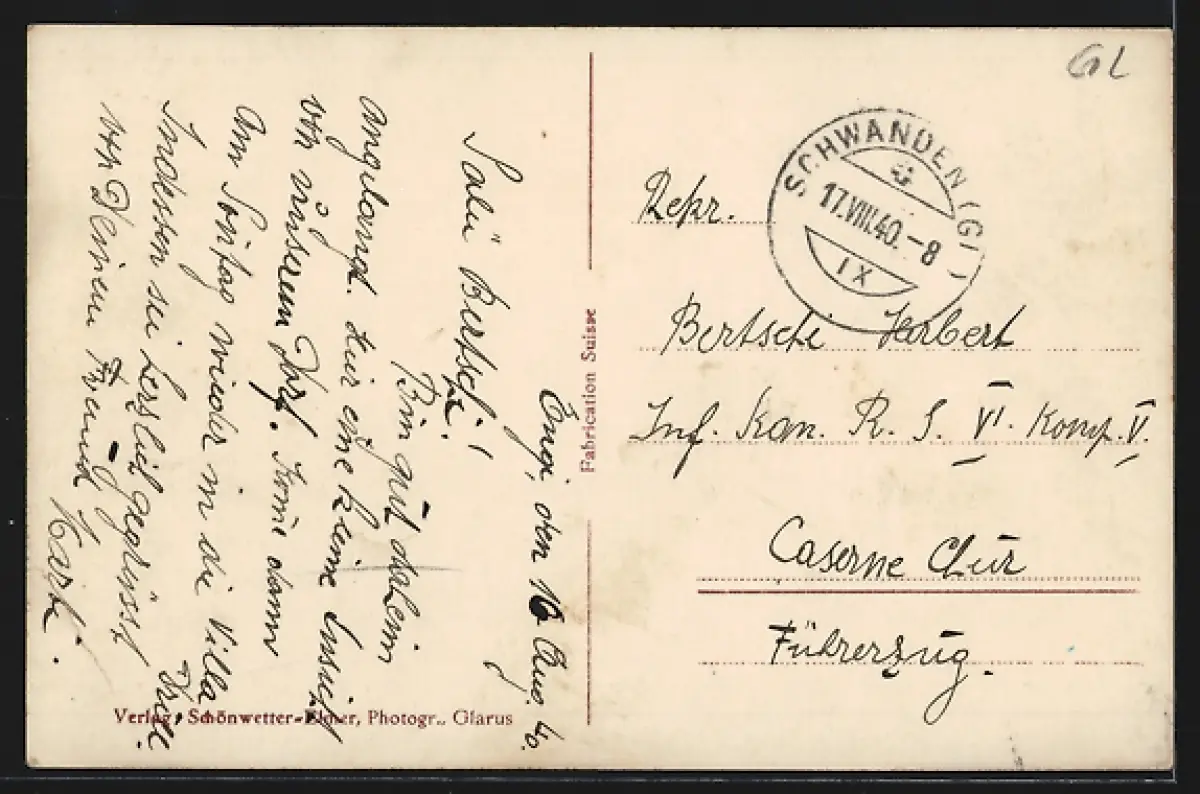 Engi, den 16 Aug. 40.
Salü Bertschi!
Bin gut daheim
angelangt. Hier eine kleine Ansicht
von unserem Dorf. Komme dann
am Sontag wieder in die Villa
Indessen sei herzlich gegrüsst
von Deinem Freund
Verlag: Schönwetter-Elmer, Photogr., Glarus
Fabrication Suisse
GL
SCHWANDEN (GL)
17.VIII.40.-8
IX
Rekr.
Bertschi Herbert
Inf. Kan. R. S. VI. Komp. V.
Caserne Chur
Führerzug.